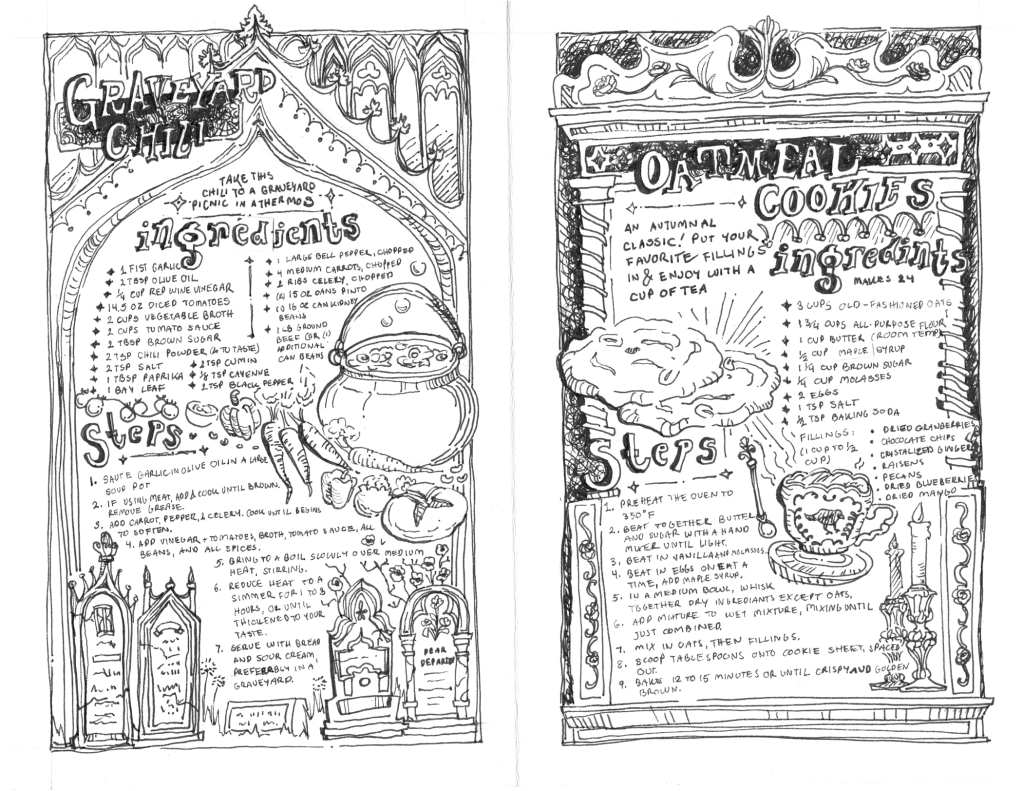 GRAVEYARD
CHILI
TAKE THIS
CHILI TO A GRAVEYARD
PICNIC IN A THERMOS
ingredients
1 FIST GARLIC
2 TBSP OLIVE OIL
1/4 CUP RED WINE VINEGAR
14.5 OZ DICED TOMATOES
2 CUPS VEGETABLE BROTH
2 CUPS TOMATO SAUCE
2 TBSP BROWN SUGAR
2 TSP CHILI POWDER (OR TO TASTE)
2 TSP SALT
1 TBSP PAPRIKA
1 BAY LEAF
2 TSP CUMIN
1/4 TSP CAYENNE
2 TSP BLACK PEPPER
1 LARGE BELL PEPPER, CHOPPED
4 MEDIUM CARROTS, CHOPPED
2 RIBS CELERY, CHOPPED
(2) 15 OZ CANS PINTO
(1) 16 OZ CAN KIDNEY
BEANS
1 LB GROUND
BEEF (OR (1)
ADDITIONAL
CAN BEANS
Steps
1. SAUTE GARLIC IN OLIVE OIL IN A LARGE
SOUP POT
2. IF USING MEAT, ADD & COOK UNTIL BROWN,
REMOVE GREASE.
3. ADD CARROT, PEPPER, & CELERY. COOK UNTIL BEGINS
TO SOFTEN.
4. ADD VINEGAR + TOMATOES, BROTH, TOMATO SAUCE, ALL
BEANS, AND ALL SPICES.
5. BRING TO A BOIL SLOWLY OVER MEDIUM
HEAT, STIRRING.
6. REDUCE HEAT TO A
SIMMER FOR 1 TO 3
HOURS, OR UNTIL
THICKENED TO YOUR
TASTE.
7. SERVE WITH BREAD
AND SOUR CREAM,
PREFERRBLY IN A
GRAVEYARD.
DEAR
DEPARTED
OATMEAL
COOKIES
AN AUTUMNAL
CLASSIC! PUT YOUR
FAVORITE FILLINGS
IN & ENJOY WITH A
CUP OF TEA
ingredints
MAKES 24
3 CUPS OLD-FASHIONED OATS
1 3/4 CUPS ALL-PURPOSE FLOUR
1 CUP BUTTER (ROOM TEMP)
1/2 CUP MAPLE SYRUP
1 1/4 CUP BROWN SUGAR
1/4 CUP MOLASSES
2 EGGS
1 TSP SALT
1/2 TSP BAKING SODA
FILLINGS:
(1 CUP TO 1/2
CUP)
• DRIED CRANBERRIES
• CHOCOLATE CHIPS
• CRYSTALIZED GINGER
• RAISENS
• PECANS
• DRIED BLUEBERRIES
• DRIED MANGO
Steps
1. PREHEAT THE OVEN TO
350°F
2. BEAT TOGETHER BUTTER
AND SUGAR WITH A HAND
MIXER UNTIL LIGHT.
3. BEAT IN VANILLA AND MOLASSES.
4. BEAT IN EGGS ON EAT A
TIME, ADD MAPLE SYRUP.
5. IN A MEDIUM BOWL, WHISK
TGETHER DRY INGREDIANTS EXCEPT OATS,
6. ADD MIXTURE TO WET MIXTURE, MIXING UNTIL
JUST COMBINED.
7. MIX IN OATS, THEN FILLINGS.
8. SCOOP TABLESPOONS ONTO COOKIE SHEET, SPACED
OUT.
9. BAKE 12 TO 15 MINUTES OR UNTIL CRISPY AND GOLDEN
BROWN.